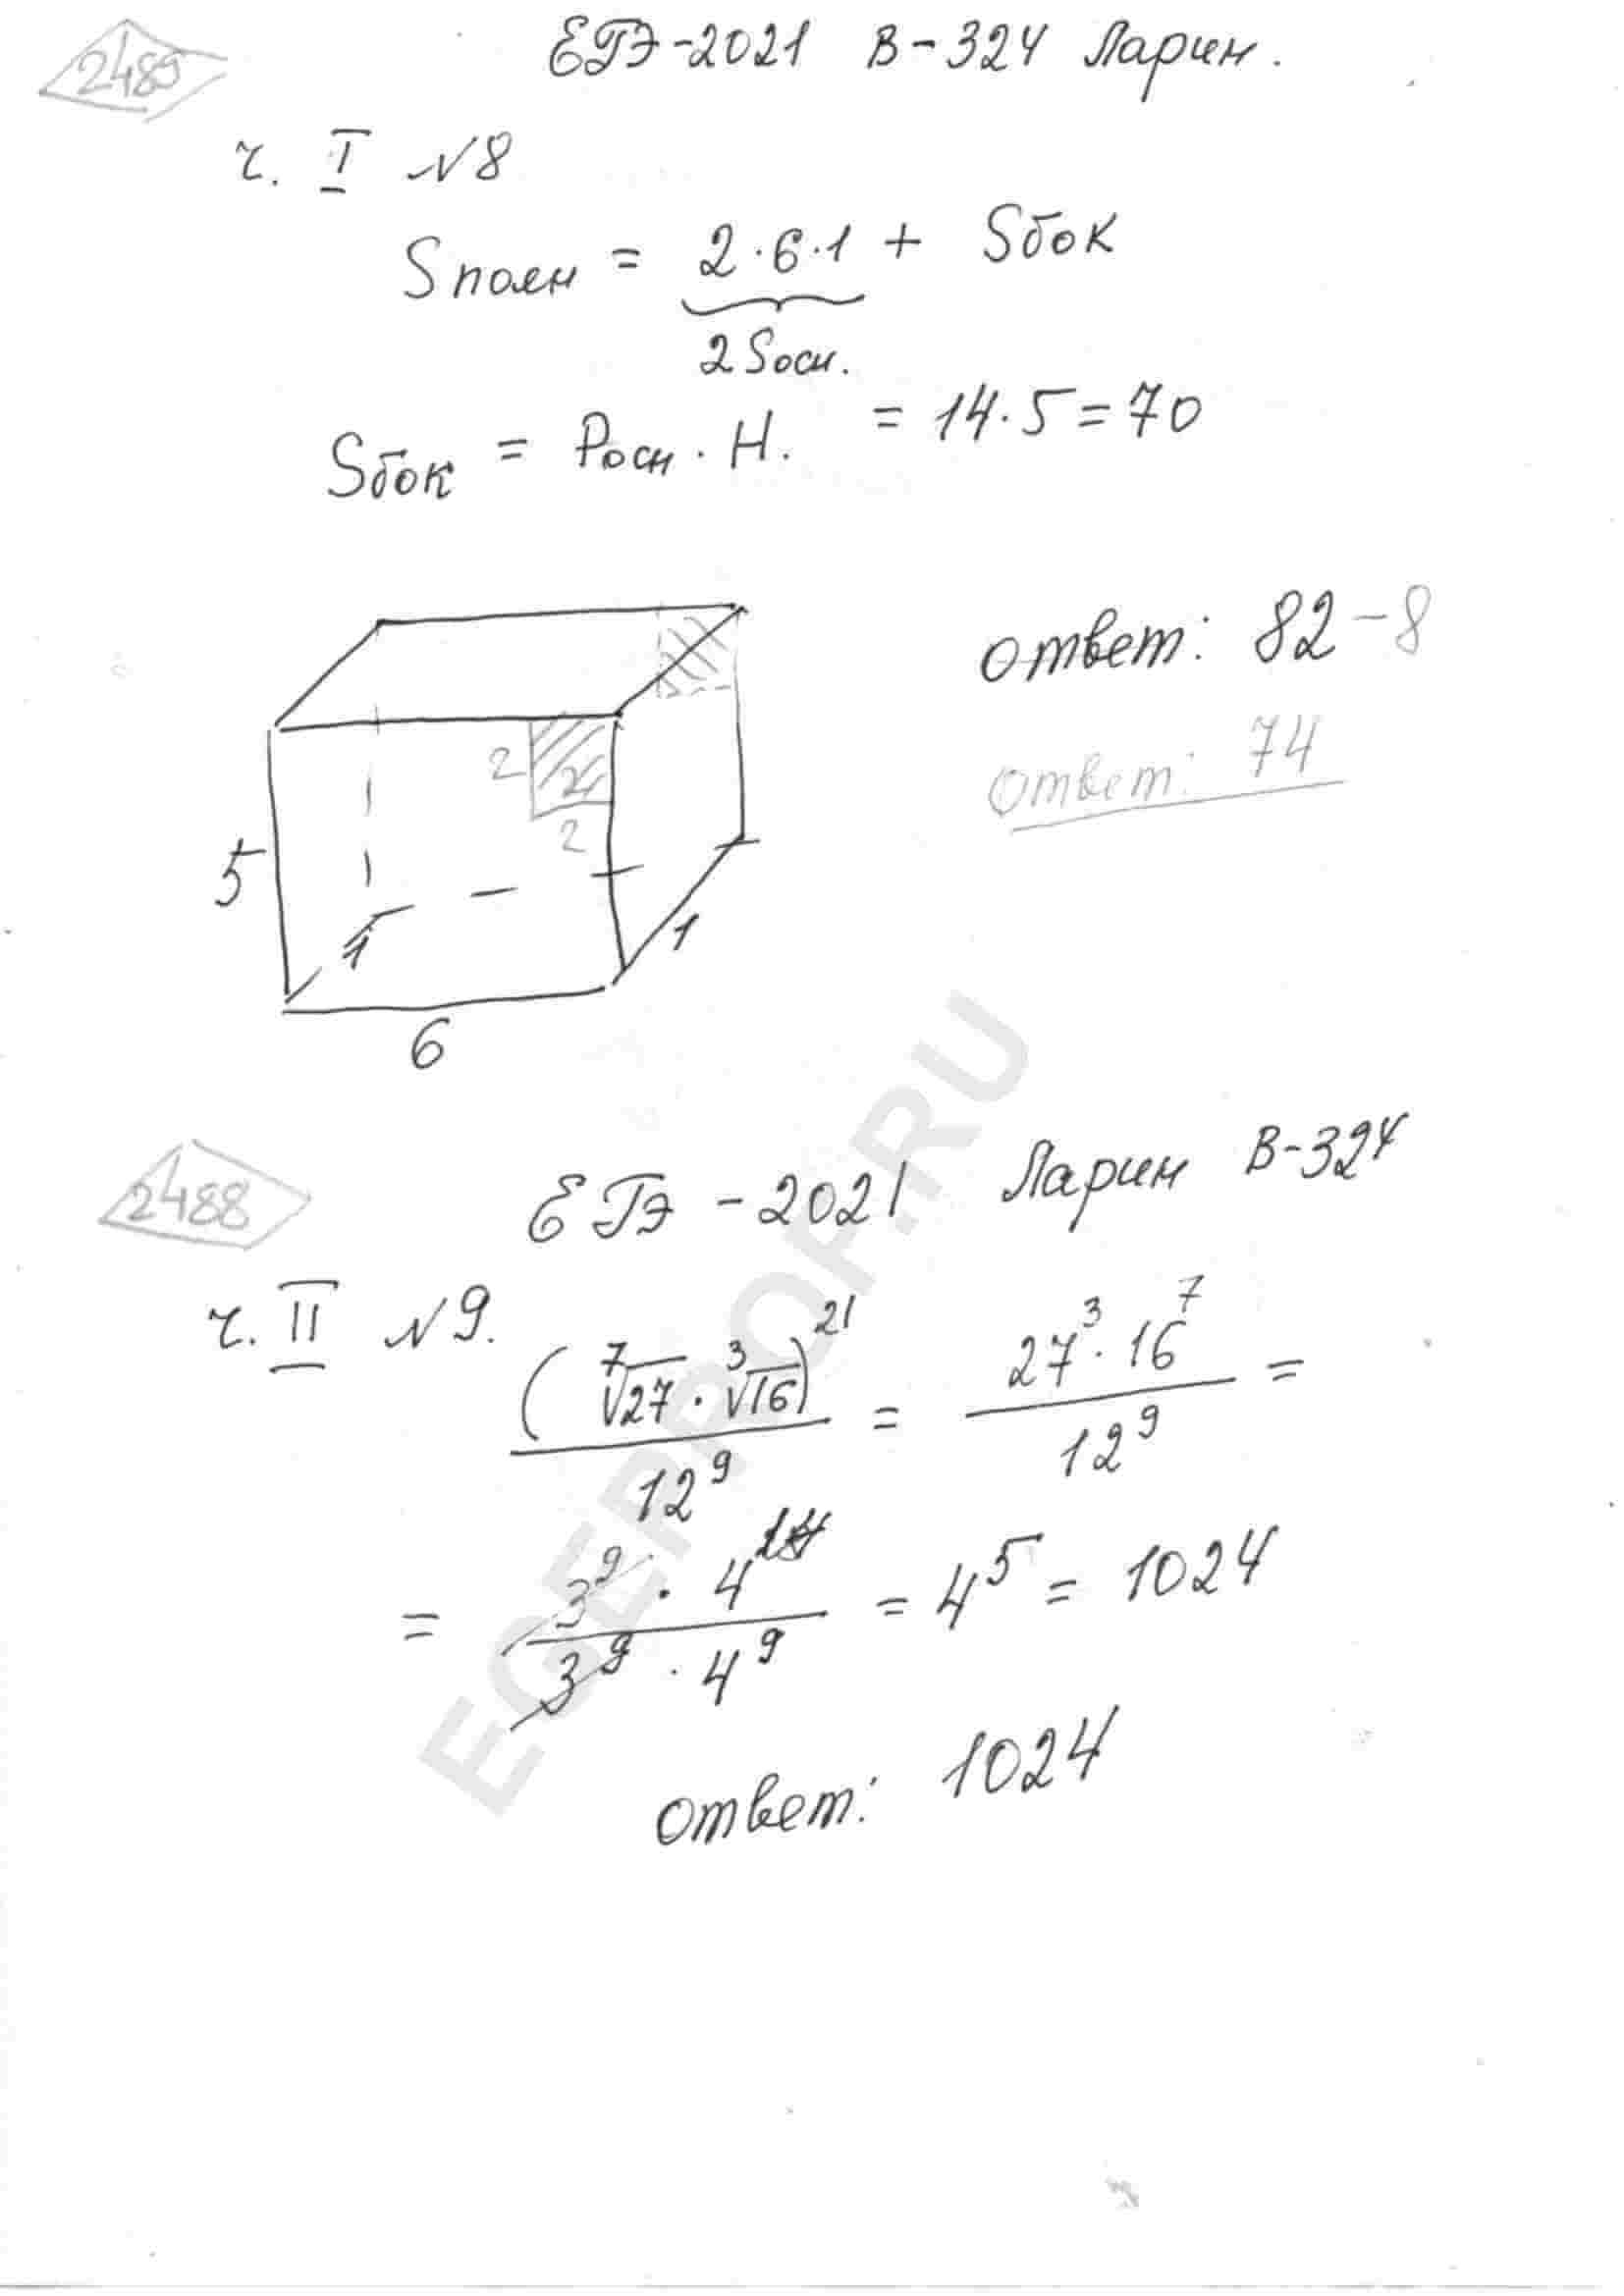 2489
ЕГЭ-2021 В-324 Ларин.
ч. I №8
Sполн = 2·6·1 + Sбок
2Sосн.
Sбок = Pосн · H. = 14·5=70
ответ: 82-8
ответ: 74
2
2
5
1
1
6
2488
ЕГЭ-2021 Ларин В-324
ч. II №9.
(⁷√27 · ³√16)²¹ / 12⁹ = 27³·16⁷ / 12⁹ =
= 3⁹ · 4¹⁴ / 3⁹ · 4⁹ = 4⁵ = 1024
ответ: 1024
EGEPROF.RU